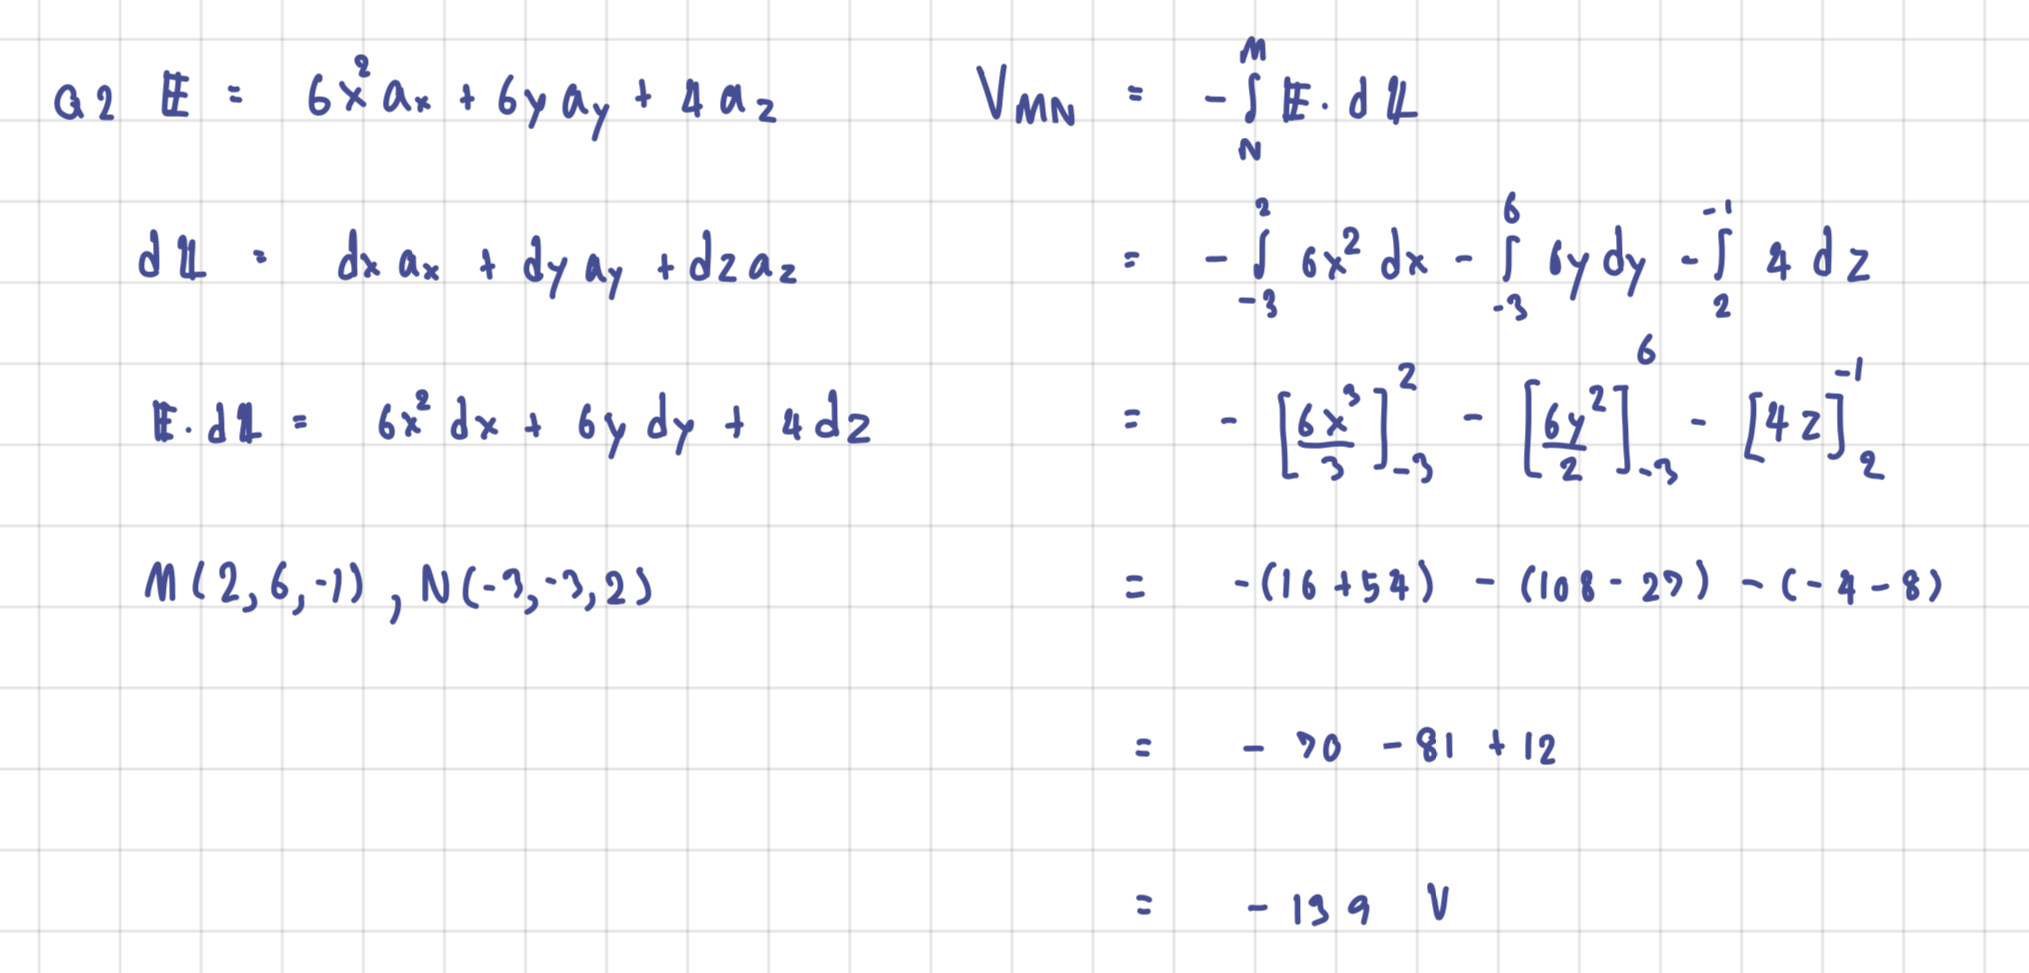 Q2 E = 6x² aₓ + 6y a_y + 4 a_z
dL = dx aₓ + dy a_y + dz a_z
E · dL = 6x² dx + 6y dy + 4 dz
M(2,6,-1), N(-3,-3,2)
V_MN = -∫_N^M E · dL
= -∫_{-3}^{2} 6x² dx - ∫_{-3}^{6} 6y dy - ∫_{2}^{-1} 4 dz
= -[6x³/3]_{-3}^{2} - [6y²/2]_{-3}^{6} - [4z]_{2}^{-1}
= -(16 + 54) - (108 - 27) - (-4 - 8)
= -70 - 81 + 12
= -139 V